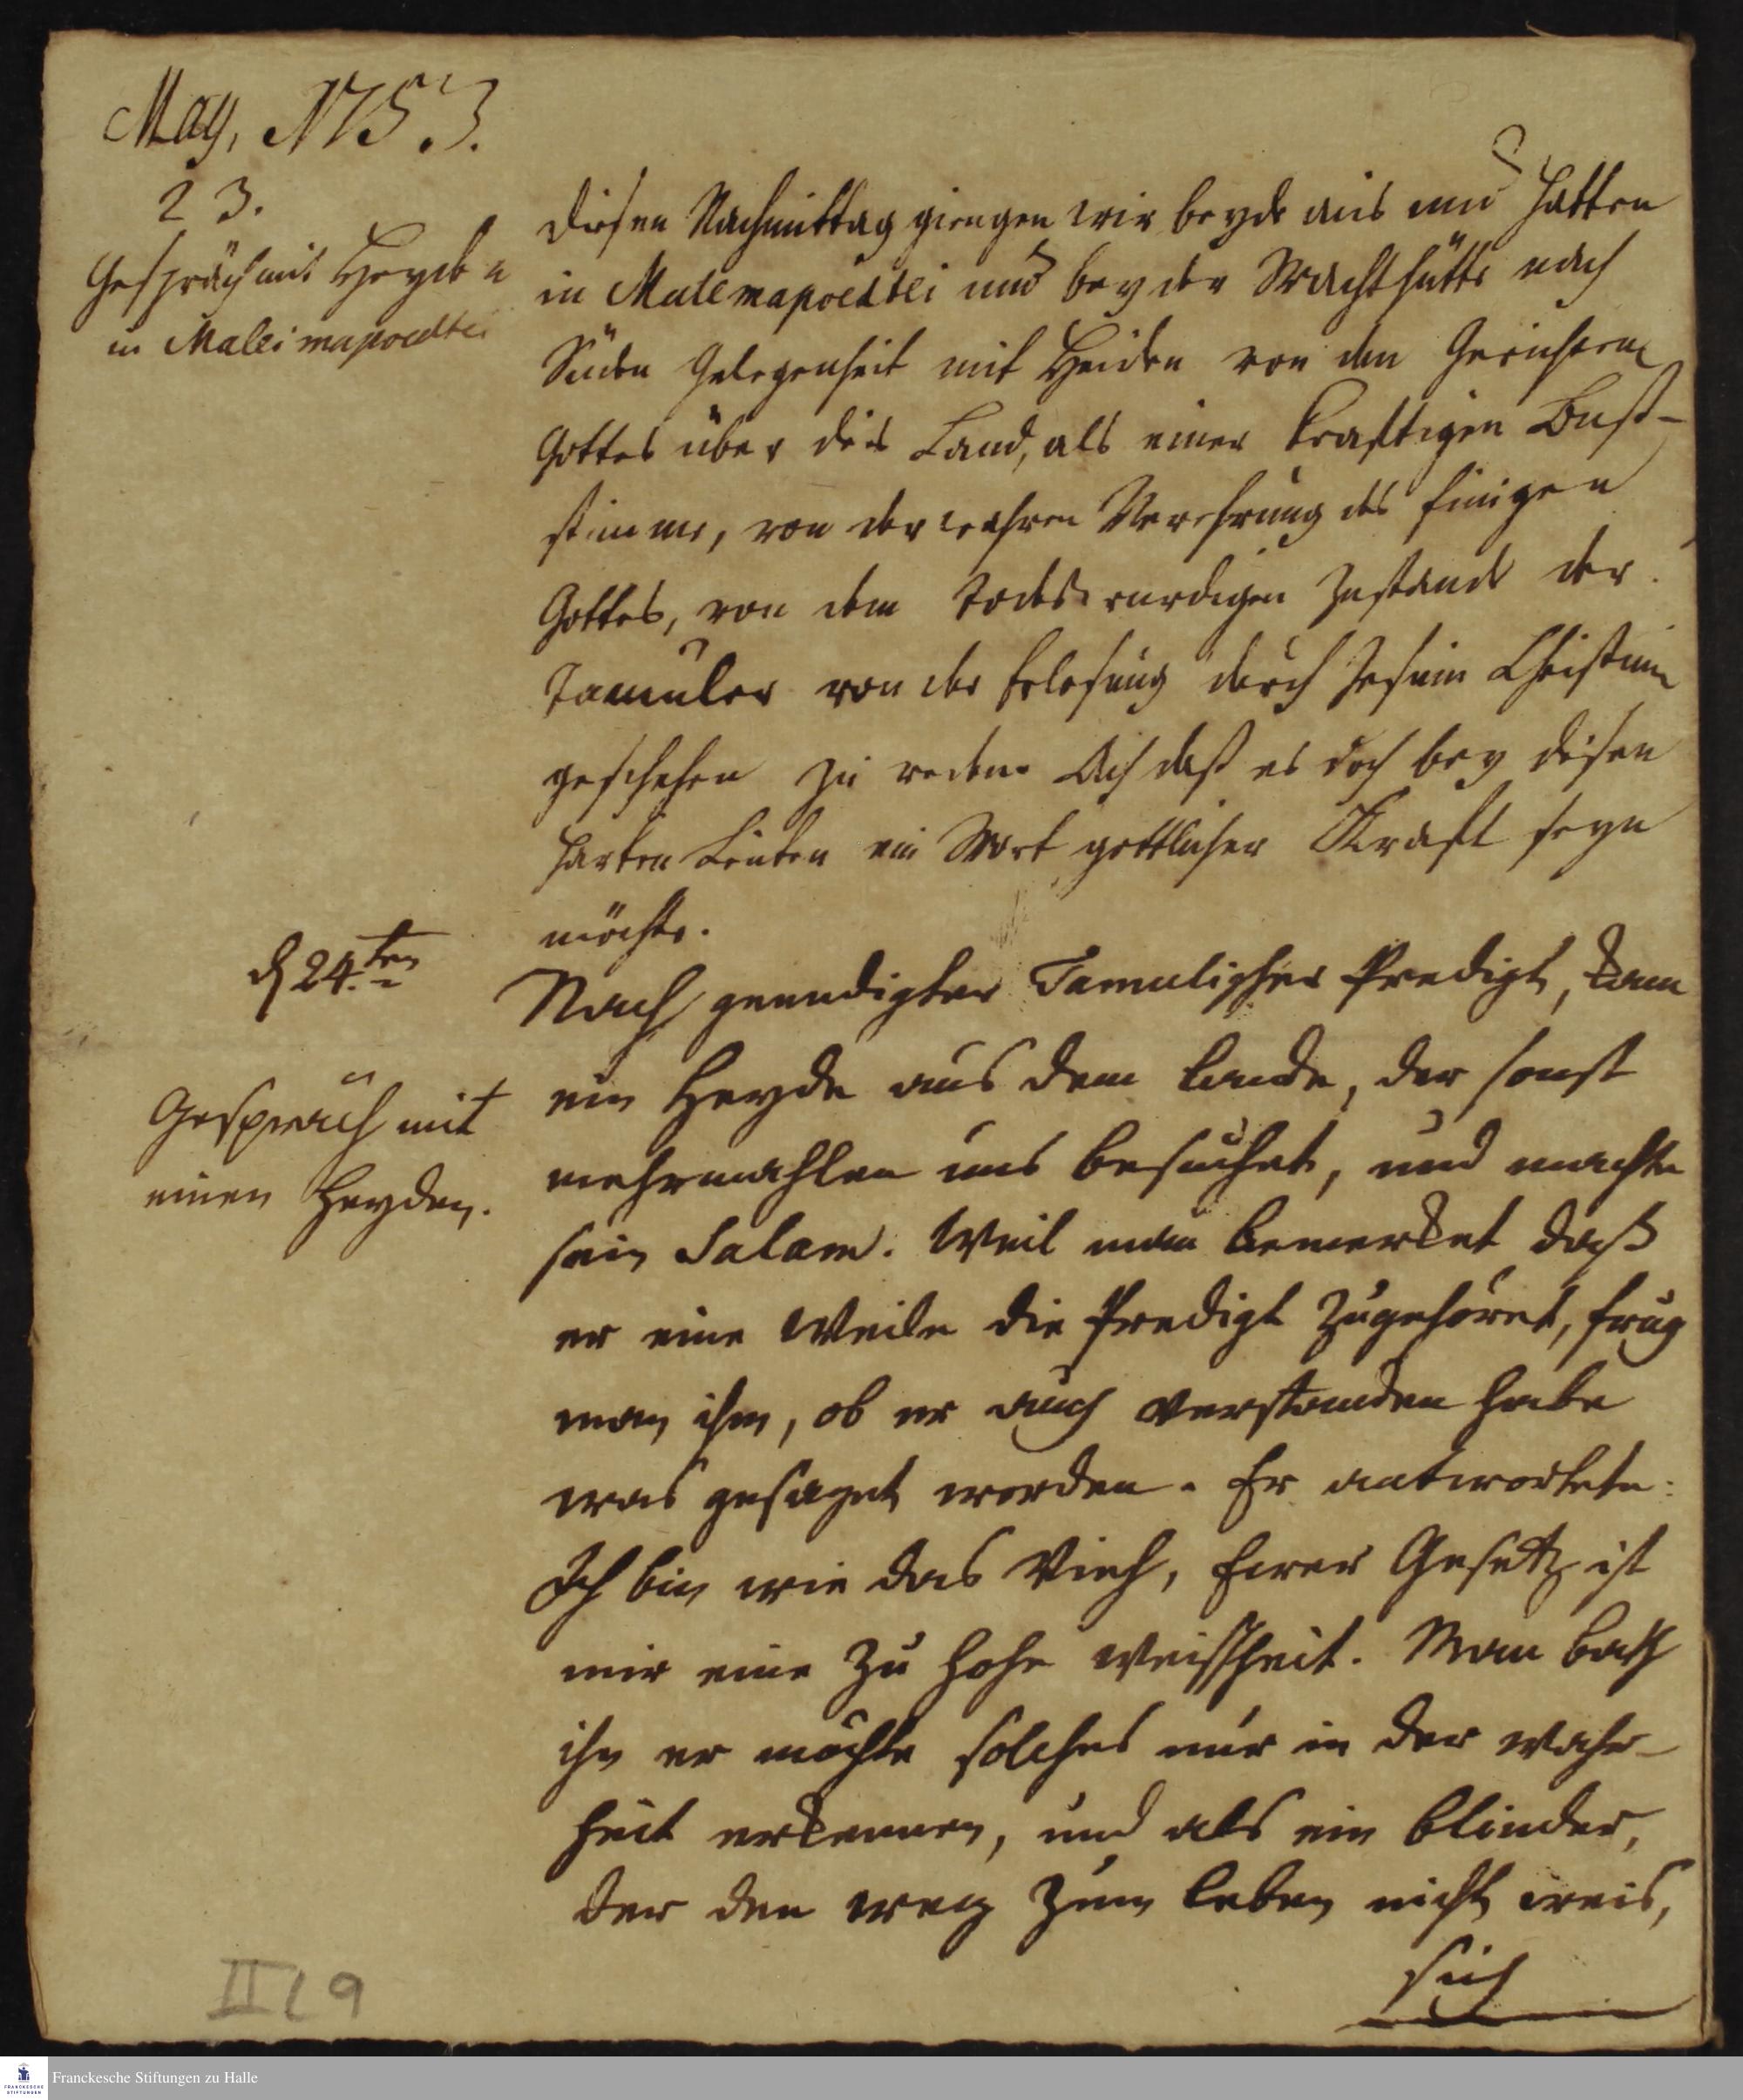 May, 1753.
23.
Gespräch mit Heyden
in Maleimapoedtei
diesen Nachmittag giengen wir beyde aus und hatten
in Malemapoedtei und bey der Wachthütte nach
Süden Gelegenheit mit Heiden von den Gerichten
Gottes über dis Land, als einer krafftigen Buß-
stimme, von der wahren Verehrung des Einigen
Gottes, von dem Todeswurdigen Zustande der
Tamuler von der Erlosung durch Jesum Christum
geschehen zu reden. Ach daß es doch bey disen
harten Leuten ein Wort gottlicher Krafft seyn
möchte.
d 24.ten
Gespräch mit
einen Heyden.
Nach geendigter Tamulischer Predigt, kam
ein Heyde aus dem Lande, der sonst
mehrmahlen uns besuchet, und machte
sein Salam. Weil man bemerket daß
er eine Weile die Predigt zugehöret, frug
man ihm, ob er auch verstanden habe
was gesaget worden. Er antwortete:
Ich bin wie das Vieh, Eurer Gesetz ist
mir eine zu hohe Weissheit. Man bath
ihn er möchte solches nur in der Wahr-
heit erkennen, und als ein blinder,
der den Weg zum Leben nicht weis,
sich
II L 9
Franckesche Stiftungen zu Halle
FRANCKESCHE
STIFTUNGEN